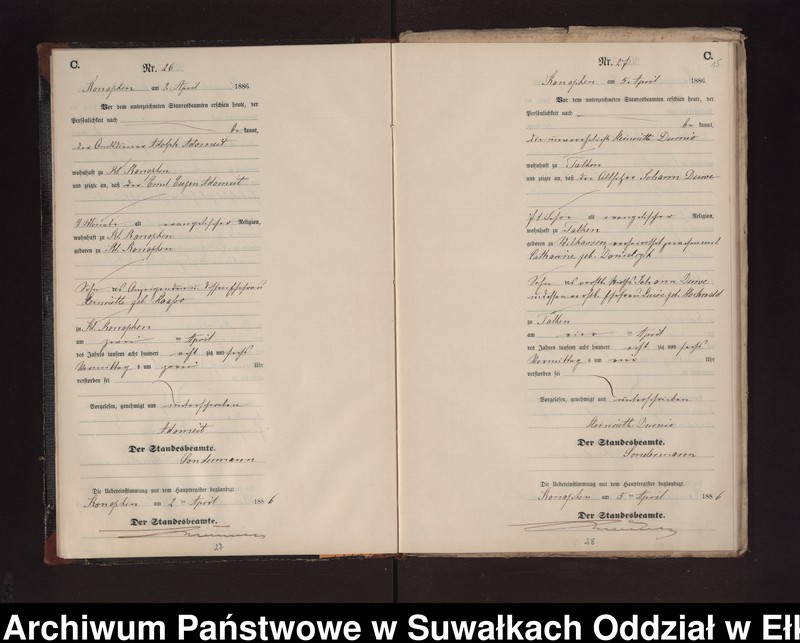 C.
Nr. 26
Konopken am 2. April 1886
Vor dem unterzeichneten Standesbeamten erschien heute, der
Persönlichkeit nach
be kannt,
der Amtsdiener Adolph Adomeit
wohnhaft zu Kl. Konopken
und zeigte an, daß der Emil Eugen Adomeit
Monate alt evangelischer Religion,
wohnhaft zu Kl. Konopken
geboren zu Kl. Konopken
Sohn des Anzeigenden u. dessen Ehefrau
Henriette geb.
zu Kl. Konopken
am zwei ten April
des Jahres tausend acht hundert acht zig und sechs
Vormittag s um zwei Uhr
verstorben sei
Vorgelesen, genehmigt und unterschrieben
Adomeit
Der Standesbeamte.
Sondermann
Die Uebereinstimmung mit dem Hauptregister beglaubigt.
Konopken am 2ten April 1886
Der Standesbeamte.
27
C.
15
Nr. 27
Konopken am 5. April 1886
Vor dem unterzeichneten Standesbeamten erschien heute, der
Persönlichkeit nach
be kannt,
die unverehelichte Henriette
wohnhaft zu Talken
und zeigte an, daß der Altsitzer Johann
Jahre alt evangelischer Religion,
wohnhaft zu Talken
geboren zu verheirathet gewesen mit
Catharine geb.
Sohn des verstb. Johann
und dessen verstb. Ehefrau geb.
zu Talken
am vier ten April
des Jahres tausend acht hundert acht zig und sechs
Vormittag s um vier Uhr
verstorben sei
Vorgelesen, genehmigt und unterschrieben
Henriette
Der Standesbeamte.
Sondermann
Die Uebereinstimmung mit dem Hauptregister beglaubigt.
Konopken am 5ten April 1886
Der Standesbeamte.
28
Archiwum Państwowe w Suwałkach Oddział w Ełk